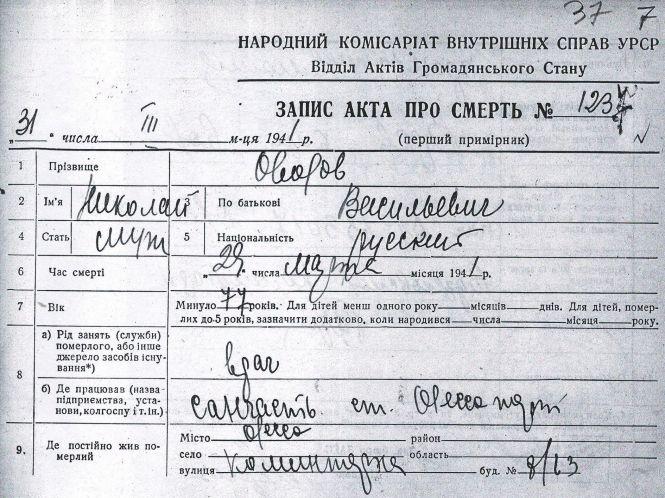 37 7
НАРОДНИЙ КОМІСАРІАТ ВНУТРІШНІХ СПРАВ УРСР
Відділ Актів Громадянського Стану
ЗАПИС АКТА ПРО СМЕРТЬ № 1237
„31“ числа III м-ця 1941 р. (перший примірник)
1 Прізвище
2 Ім'я Николай 3 По батькові Васильевич
4 Стать муж 5 Національність русский
6 Час смерті „29“ числа марта місяця 1941 р.
7 Вік Минуло 77 років. Для дітей менш одного року — місяців — днів. Для дітей, помер-
лих до 5 років, зазначити додатково, коли народився — числа — місяця — року.
8 а) Рід занять (служби) померлого, або інше джерело засобів існу-вання*) врач
б) Де працював (назва підприємства, уста-нови, колгоспу і т. ін.) санчасть ст. Одесса порт
9. Де постійно жив по-мерлий Місто Одесса район
село область
вулиця Коминтерна буд. № 8/13